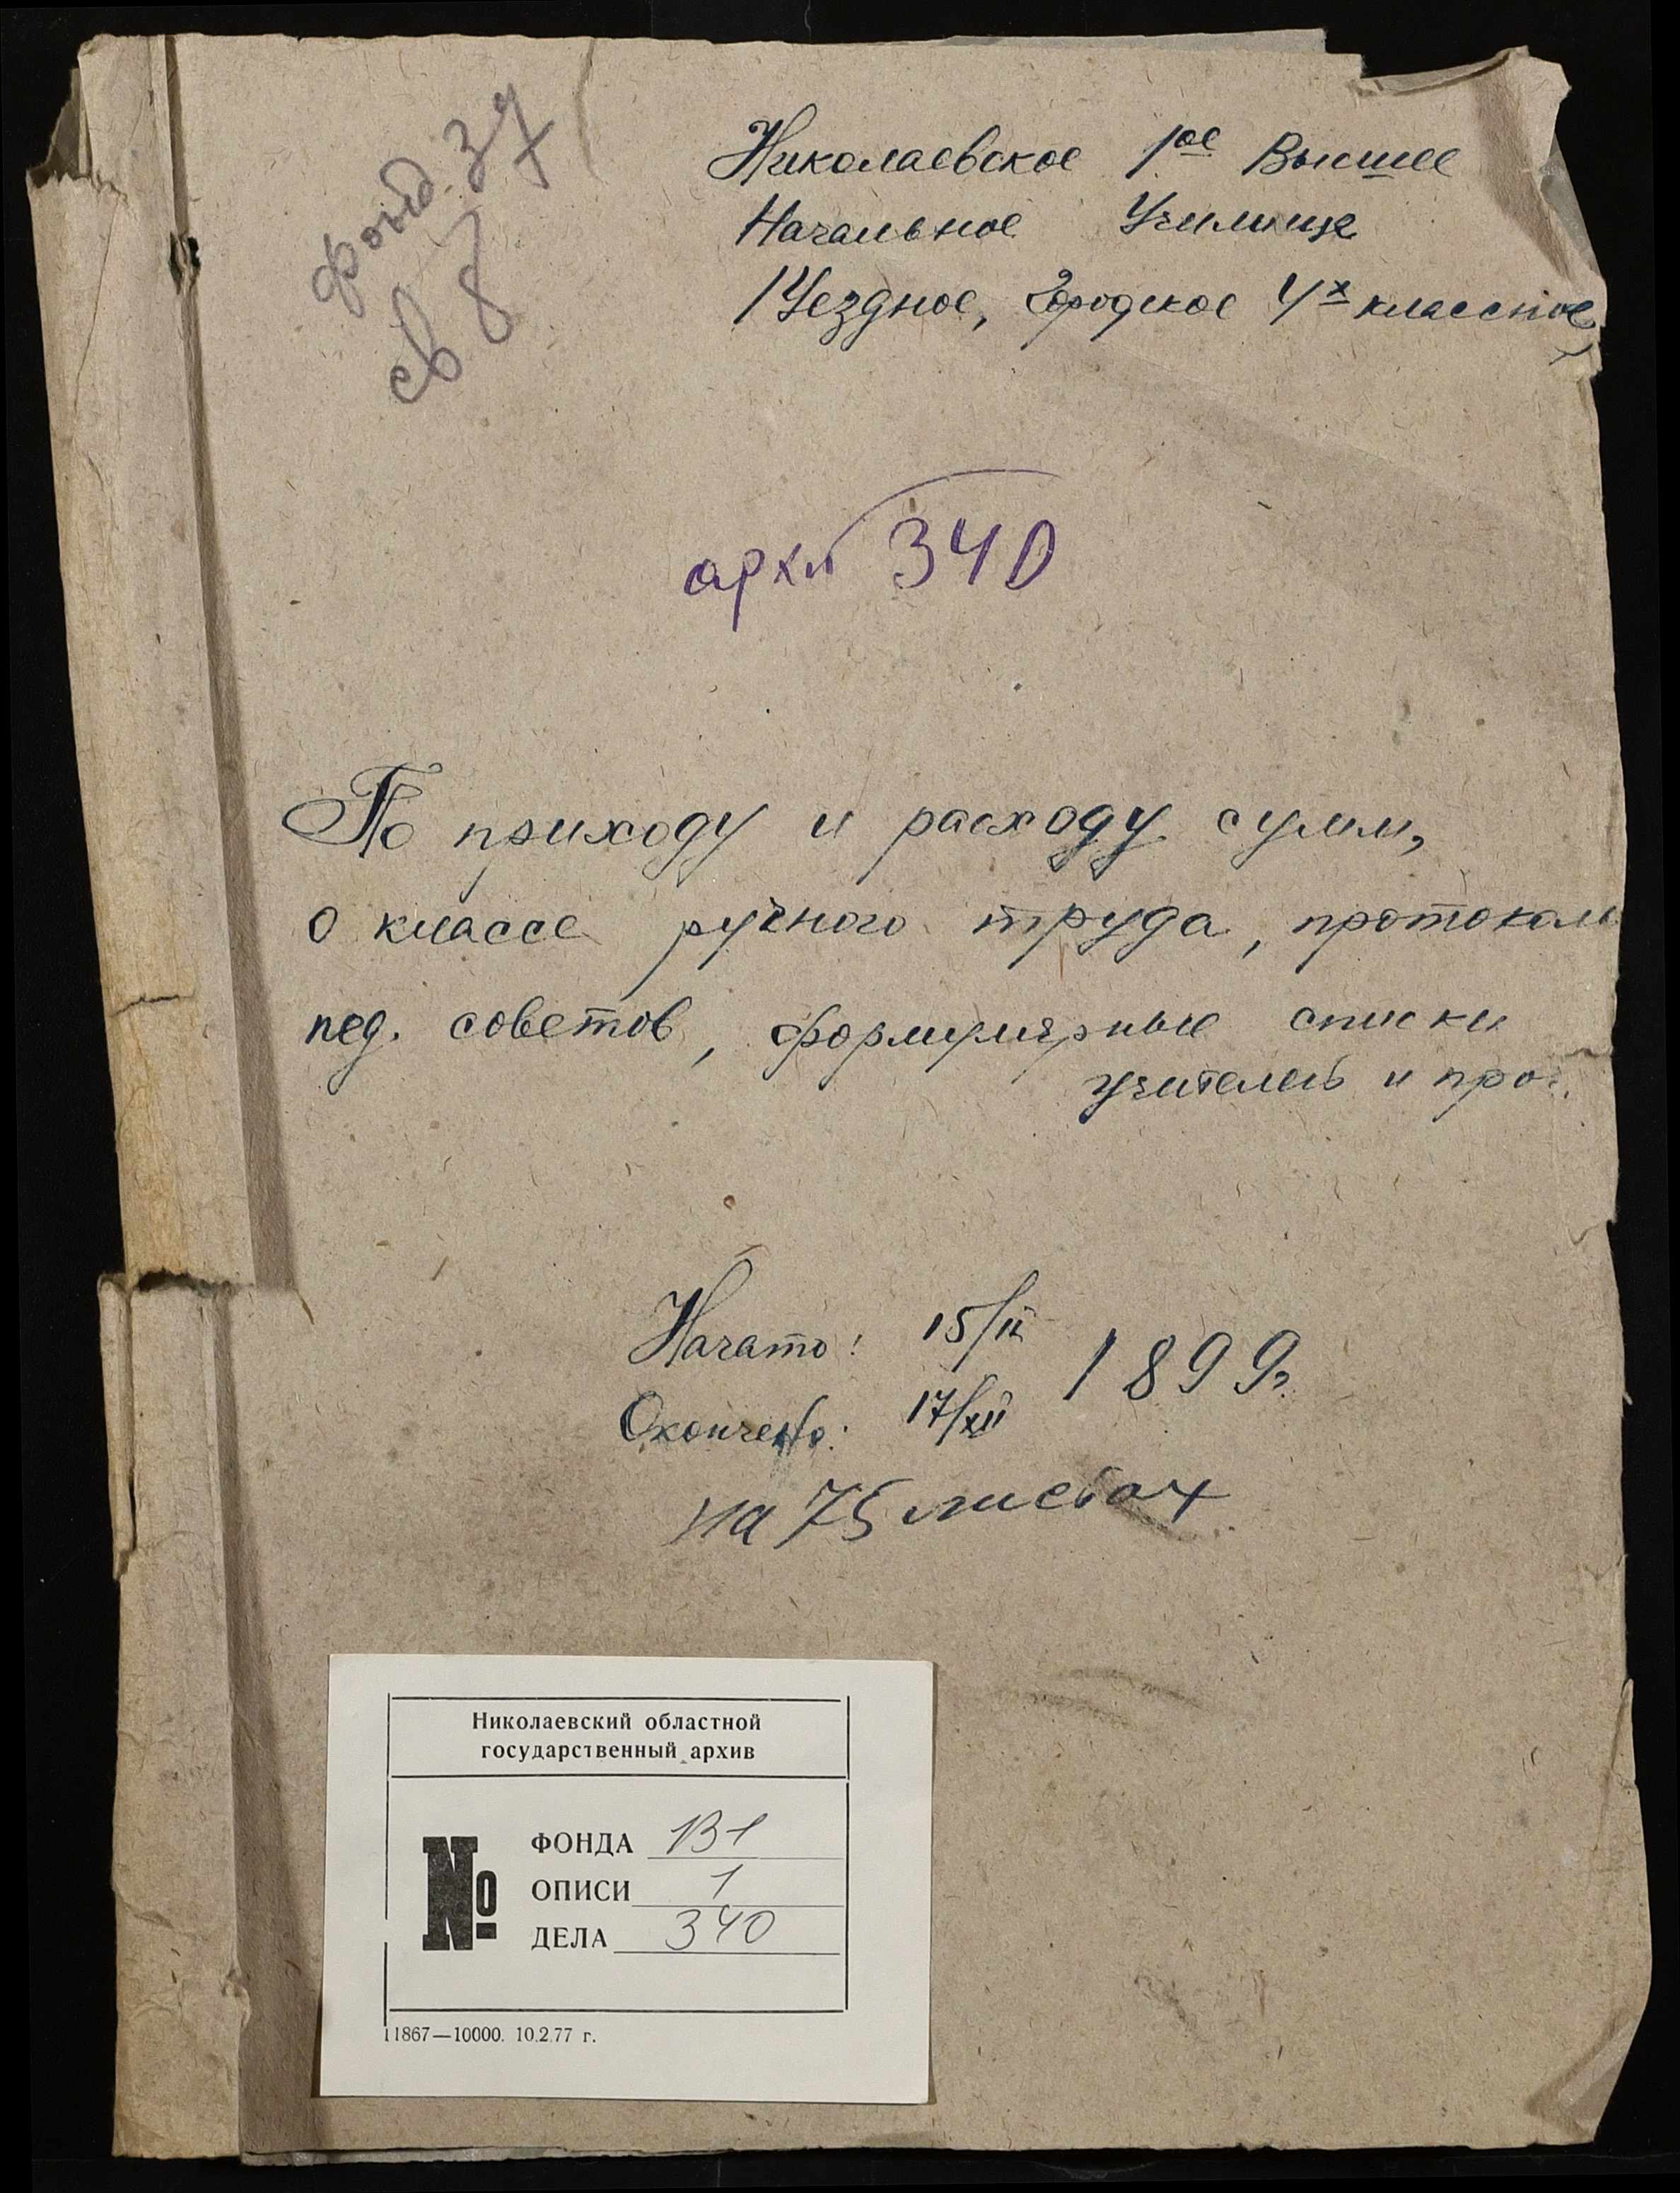 фонд. 37
св 8
Николаевское 1ое Высшее
Начальное Училище
/Уездное, Городское 4х классное/
арх № 340
По приходу и расходу сумм,
о классе ручного труда, протоколы
пед. советов, формулярные списки
учителей и про.
Начато: 15/II 1899г.
Окончено: 17/XII
на 75 листах
Николаевский областной
государственный архив
№
ФОНДА 131
ОПИСИ 1
ДЕЛА 340
11867—10000. 10.2.77 г.